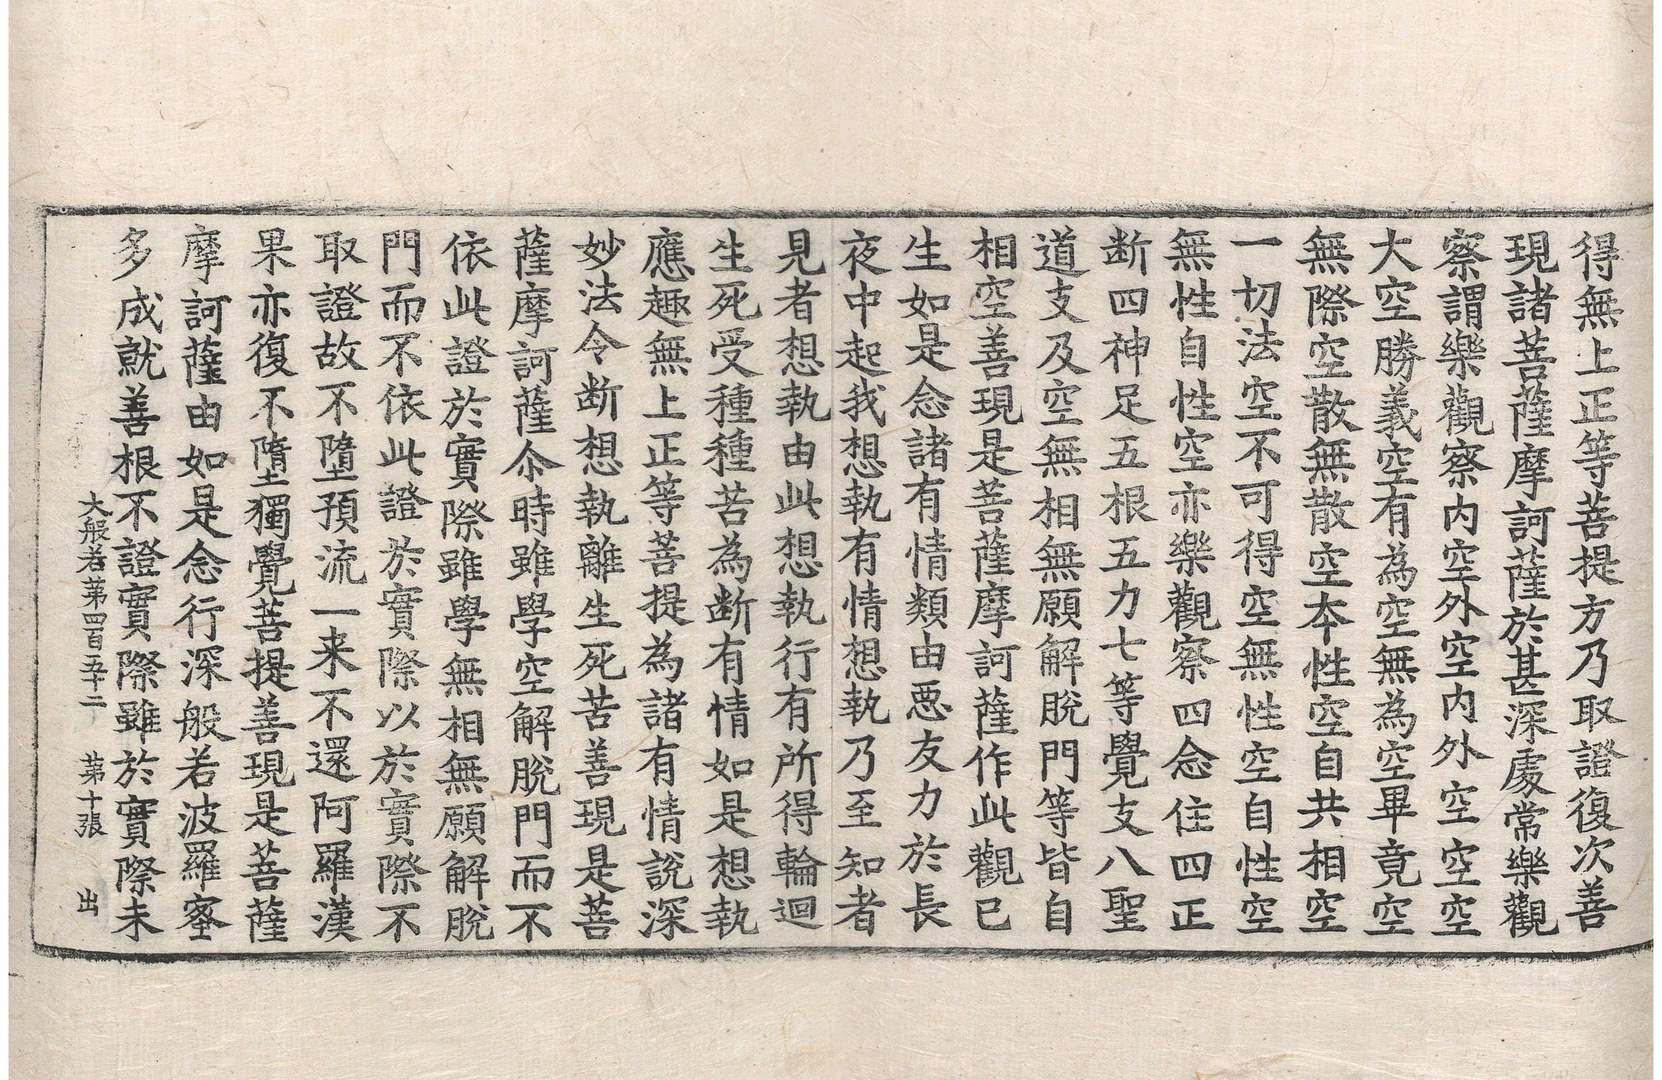 得無上正等菩提方乃取證復次善
現諸菩薩摩訶薩於甚深處常樂觀
察謂樂觀察內空外空內外空空空
大空勝義空有為空無為空畢竟空
無際空散無散空本性空自共相空
一切法空不可得空無性空自性空
無性自性空亦樂觀察四念住四正
断四神足五根五力七等覺支八聖
道支及空無相無願解脫門等皆自
相空善現是菩薩摩訶薩作此觀已
生如是念諸有情類由惡友力於長
夜中起我想執有情想執乃至知者
見者想執由此想執行有所得輪迴
生死受種種苦為断有情如是想執
應趣無上正等菩提為諸有情說深
妙法令断想執離生死苦善現是菩
薩摩訶薩尒時雖學空解脫門而不
依此證於實際雖學無相無願解脫
門而不依此證於實際以於實際不
取證故不墮預流一来不還阿羅漢
果亦復不墮獨覺菩提善現是菩薩
摩訶薩由如是念行深般若波羅蜜
多成就善根不證實際雖於實際未
大般若第四百五十二　第十張　出